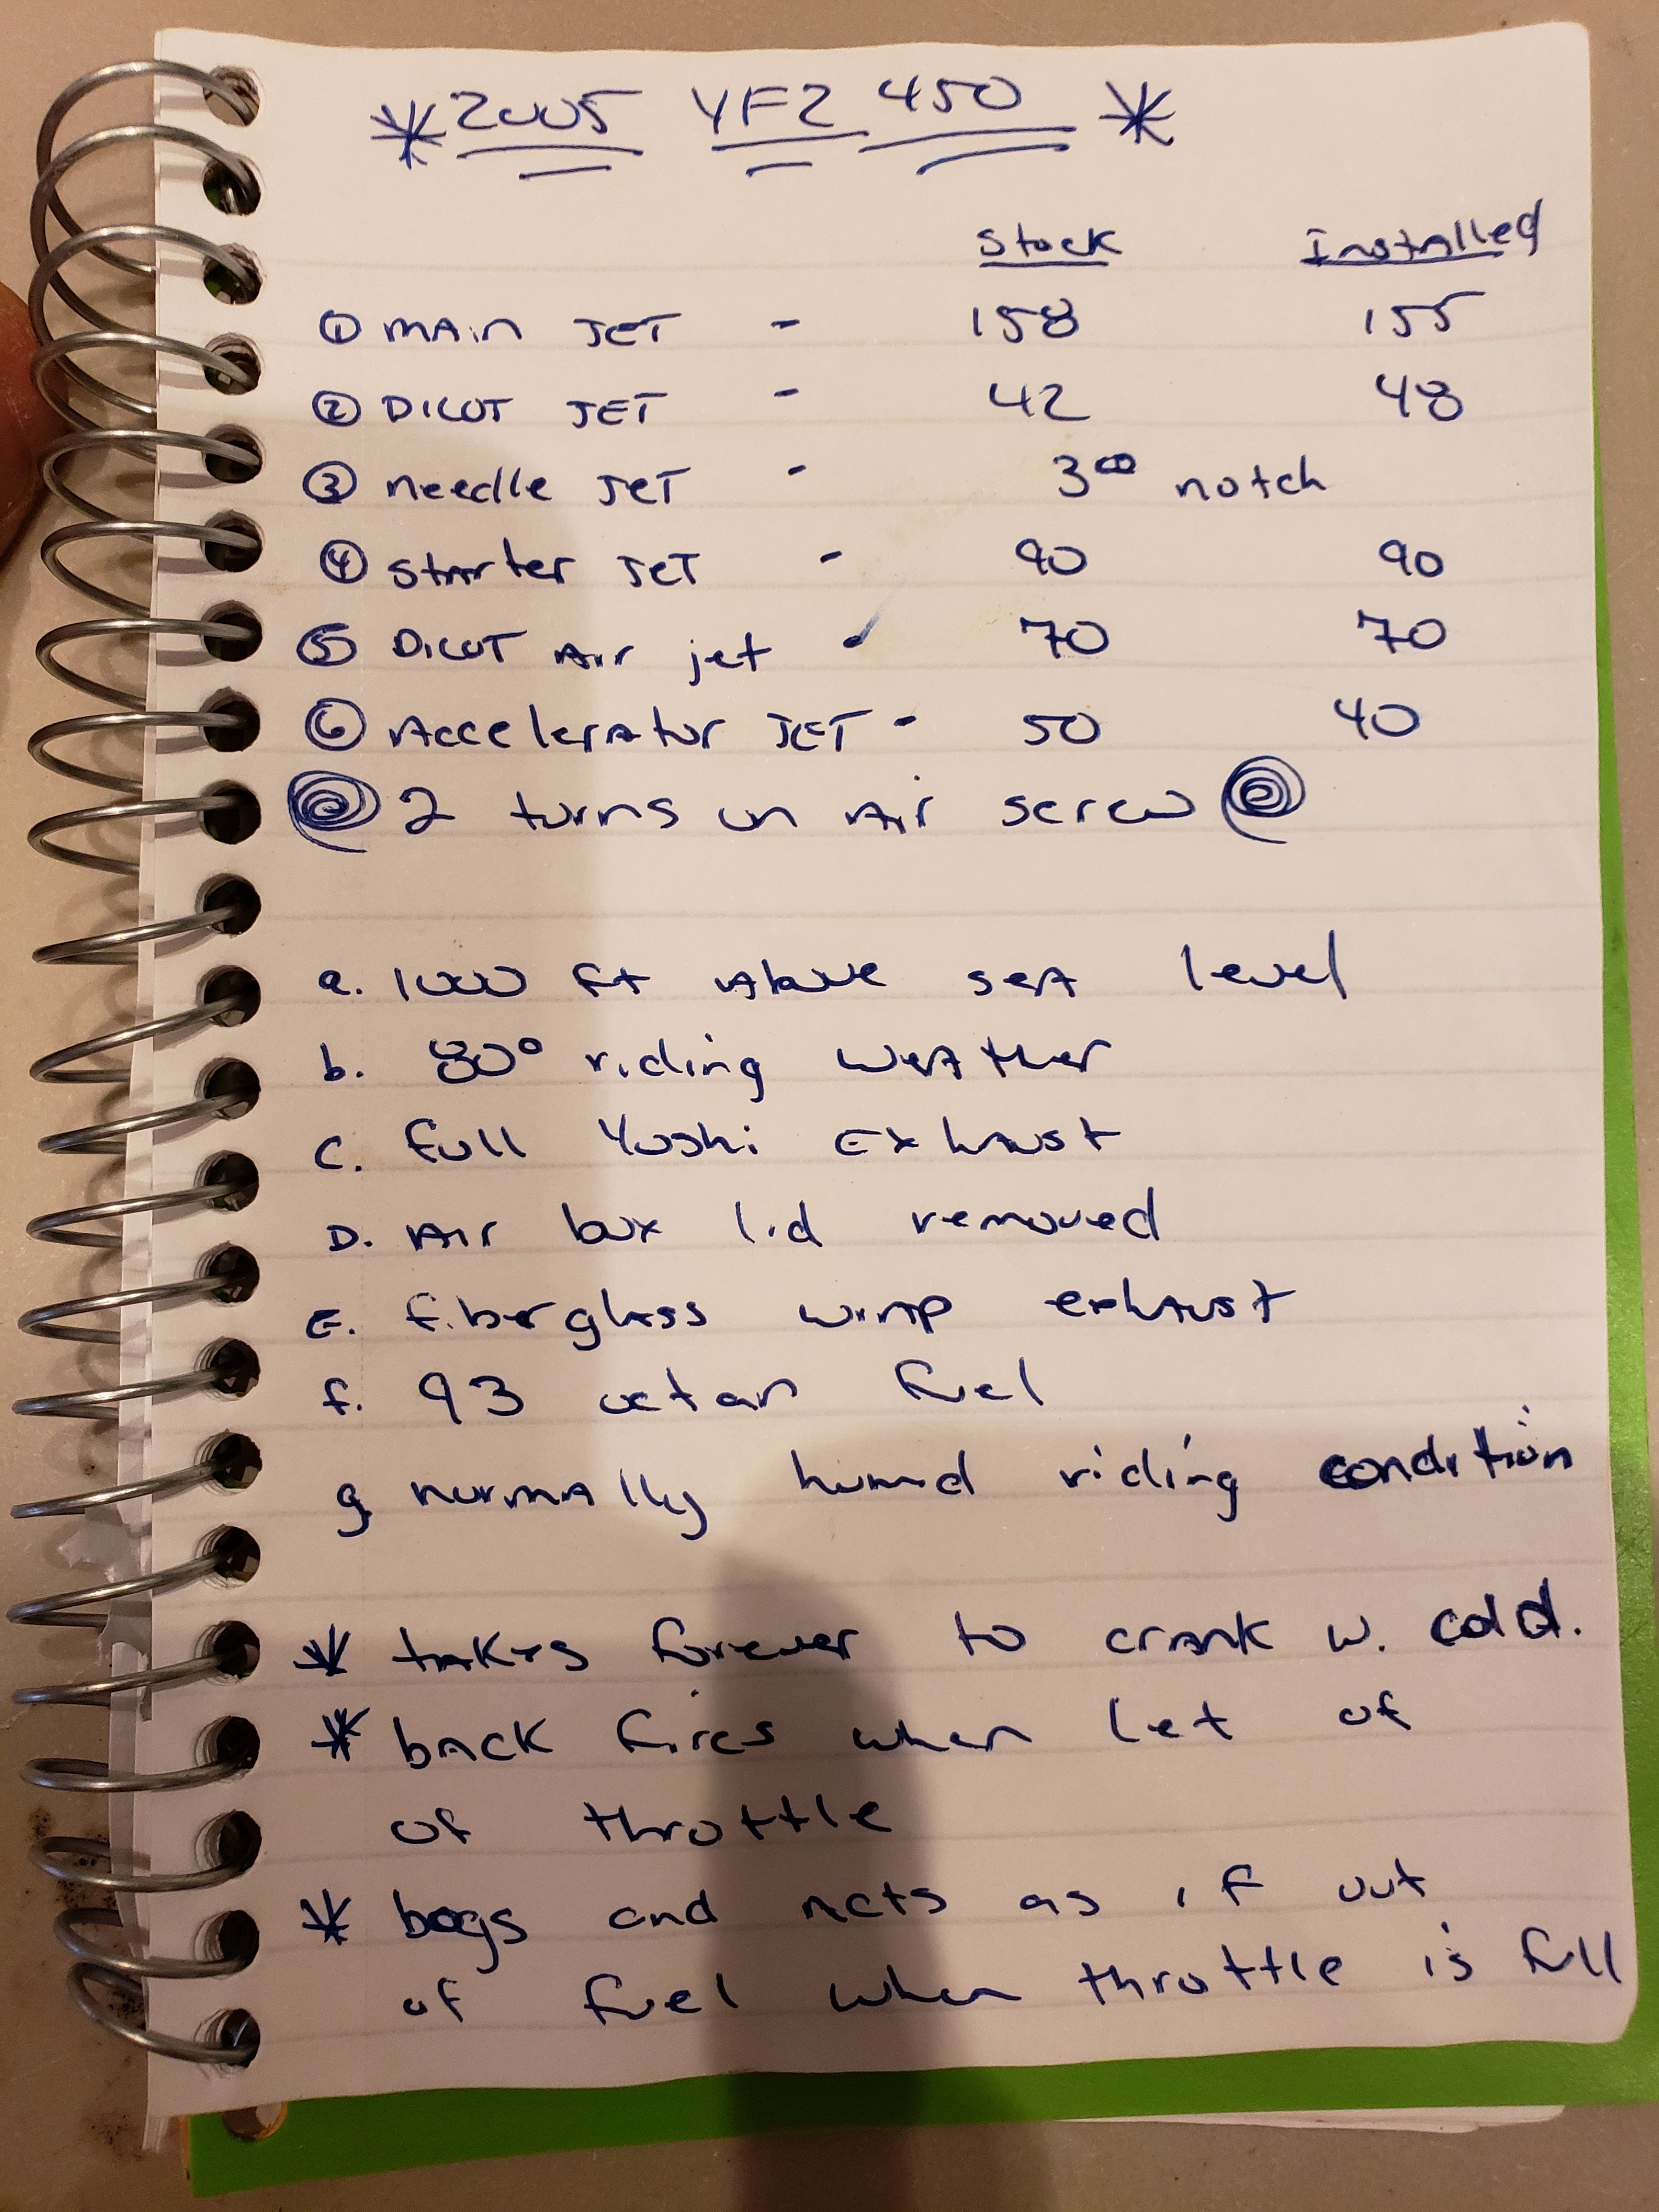 * 2005 YFZ 450 *
Stock Installed
① MAin JET - 158 155
② PILOT JET - 42 48
③ needle JET - 3RD notch
④ StArter JET - 90 90
⑤ PiLOT Air jet - 70 70
⑥ AccelerAtor JET - 50 40
2 turns on Air screw
a. 1000 ft Above seA level
b. 80° riding weAther
C. full Yoshi ExhAust
D. Air box lid removed
E. fiberglass wrap exhAust
f. 93 octan fuel
g normAlly humid riding condition
* tAkes forever to crank w. cold.
* bACK fires when let of
of throttle
* bogs and Acts as if out
of fuel when throttle is full